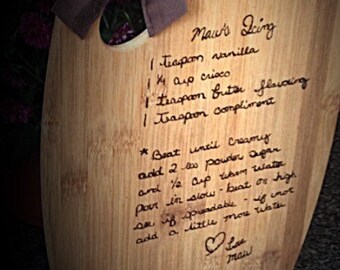 Maw's Icing
1 teaspoon vanilla
1 ¼ cup crisco
1 teaspoon butter flavoring
1 teaspoon compliment
* Beat until creamy
add 2 lbs powder sugar
and ½ cup warm water
pour in slow - beat on high
see if spreadable - if not
add a little more water
Love
Maw